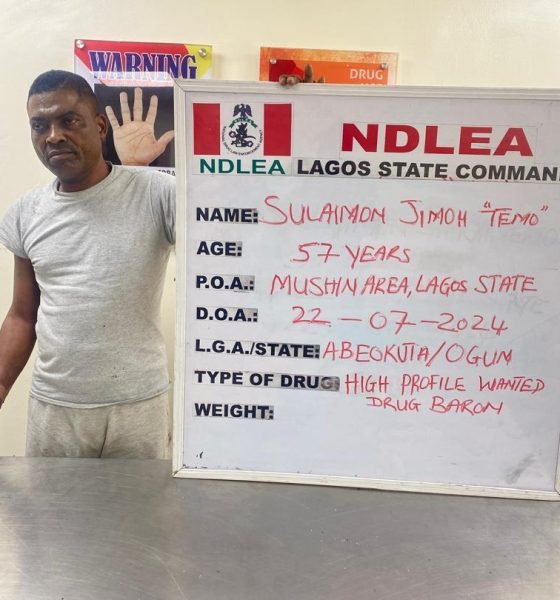 WARNING
DRUG
NDLEA
NDLEA LAGOS STATE COMMAN
NAME: SULAIMON JIMOH "TEMO"
AGE: 57 YEARS
P.O.A.: MUSHIN AREA, LAGOS STATE
D.O.A.: 22-07-2024
L.G.A./STATE: ABEOKUTA/OGUN
TYPE OF DRUG: HIGH PROFILE WANTED
DRUG BARON
WEIGHT: